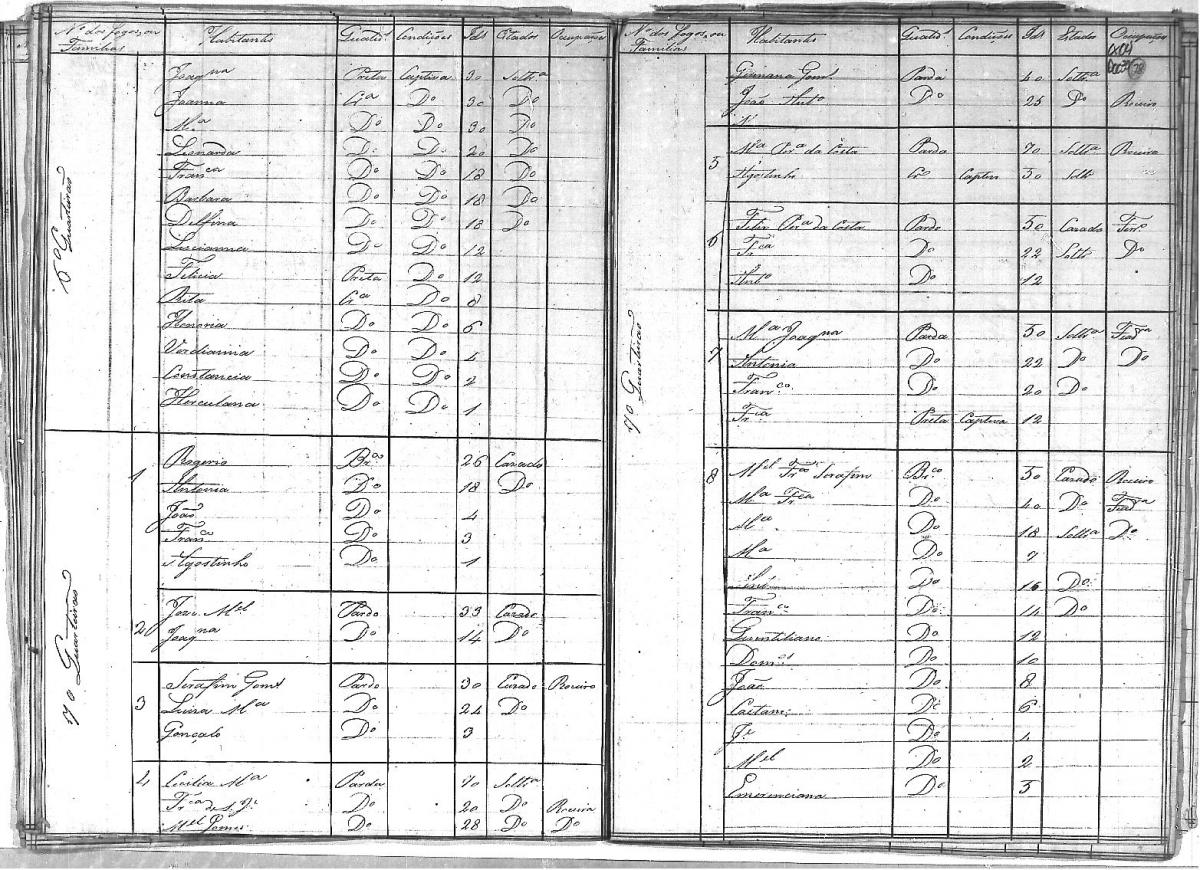 Nos dos Fogos, ou Familias Habitantes Qualid.s Condições Ids Estados Ocupações
6o Quarteirão
Joaqna Preta Captiva 30 Soltra
Joanna Cra Do 30 Do
Ma Do Do 30 Do
Leonarda Do Do 20 Do
Franca Do Do 18 Do
Barbara Do Do 18 Do
Delfina Do Do 18 Do
Do Do 12
Felicia Preta Do 12
Rita Cra Do 8
Honoria Do Do 6
Verdianna Do Do 4
Constancia Do Do 2
Herculana Do Do 1
7o Quarteirão
1 Rogerio Brco 26 Cazado
Antonia Do 18 Do
João Do 4
Franca Do 3
Agostinho Do 1
2 Joze Mel Pardo 33 Cazado
Joaqna Do 14 Do
3 Serafim Gomes Pardo 30 Cazado Roceiro
Luiza Ma Do 24 Do
Gonçalo Do 3
4 Cecilia Ma Parda 70 Soltra
Frca de S. Je Do 20 Do Roceira
Mel Gomes Do 28 Do Do
Nos dos Fogos, ou Familias Habitantes Qualid.s Condições Ids Estados Ocupações
7o Quarteirão
Parda 40 Soltra
João Anto Do 25 Do Roceiro
5 Ma Pra da Costa Parda 70 Soltra Roceira
Agostinho Cro Captivo 30 Soltro
6 Felix Pra da Costa Pardo 50 Cazado
Frca Do 22 Soltr Do
Anto Do 12
7 Ma Joaqna Parda 50 Soltra Fiadra
Antonia Do 22 Do Do
Franco Do 20 Do
Frca Preta Captiva 12
8 Mel Frco Serafim Brco 50 Cazado Roceiro
Ma Frca Do 40 Do Fiadra
Ma Do 18 Soltra Do
Ma Do 7
Do 16 Do
Franco Do 14 Do
Quintiliano Do 12
Doms Do 10
João Do 8
Caetano Do 6
Je Do 4
Mel Do 2
Emerenciana Do 3